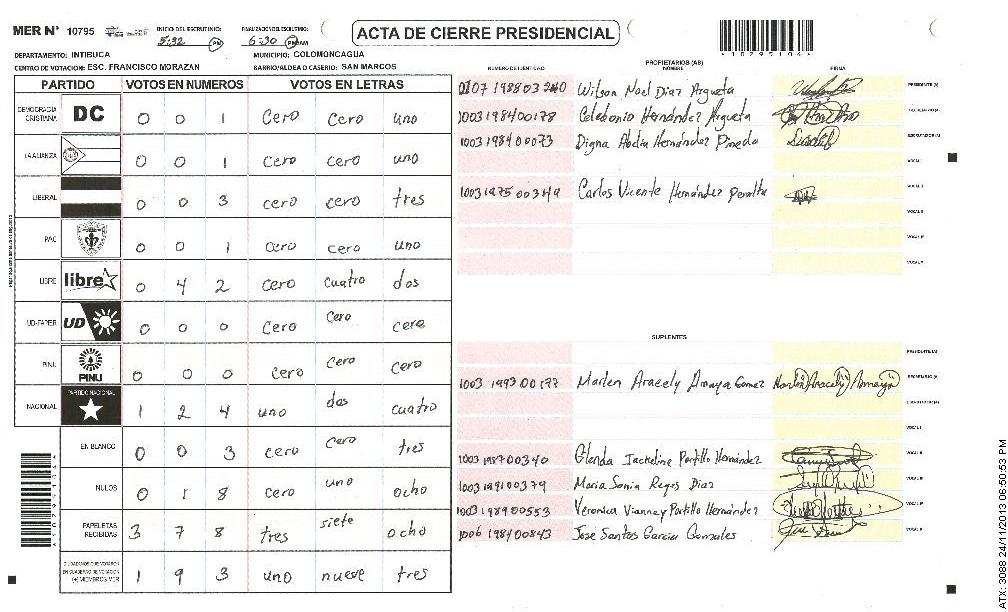 MER N° 10795
INICIO DEL ESCRUTINIO: 5:32 PM
FINALIZACION DEL ESCRUTINIO: 6:30 PM AM
ACTA DE CIERRE PRESIDENCIAL
10795106
DEPARTAMENTO: INTIBUCA
MUNICIPIO: COLOMONCAGUA
CENTRO DE VOTACION: ESC. FRANCISCO MORAZAN
BARRIO/ALDEA O CASERIO: SAN MARCOS
PARTIDO VOTOS EN NUMEROS VOTOS EN LETRAS
DEMOCRACIA CRISTIANA DC 0 0 1 cero cero uno
LA ALIANZA 0 0 1 cero cero uno
LIBERAL 0 0 3 cero cero tres
PAC 0 0 1 cero cero uno
LIBRE libre 0 4 2 cero cuatro dos
UD-FAPER UD 0 0 0 cero cero cero
PINU PINU 0 0 0 cero cero cero
NACIONAL PARTIDO NACIONAL 1 2 4 uno dos cuatro
EN BLANCO 0 0 3 cero cero tres
NULOS 0 1 8 cero uno ocho
PAPELETAS RECIBIDAS 3 7 8 tres siete ocho
CIUDADANOS QUE VOTARON EN CUADERNO DE VOTACION (+) MIEMBROS MER 1 9 3 uno nueve tres
NUMERO DE IDENTIDAD
PROPIETARIOS (AS)
NOMBRE
FIRMA
0107 198803240 Wilson Noel Diaz Argueta PRESIDENTE (A)
1003198400178 Celebonio Hernández Argueta SECRETARIO (A)
1003198400073 Digna Abdia Hernández Pineda ESCRUTADOR (A)
VOCAL I
1003197500349 Carlos Vicente Hernández Peralta VOCAL II
SUPLENTES
PRESIDENTE (A)
1003 199300177 Marlen Aracely Amaya Gomez SECRETARIO (A)
ESCRUTADOR (A)
VOCAL I
1003 198700340 Glenda Jackeline Portillo Hernández
1003199100379 Maria Sonia Reyes Diaz
1003198900553 Veronica Vianney Portillo Hernández
1006 198400843 Jose Santos Garcia Gonzales
ATX: 3088 24/11/2013 06:50:53 PM